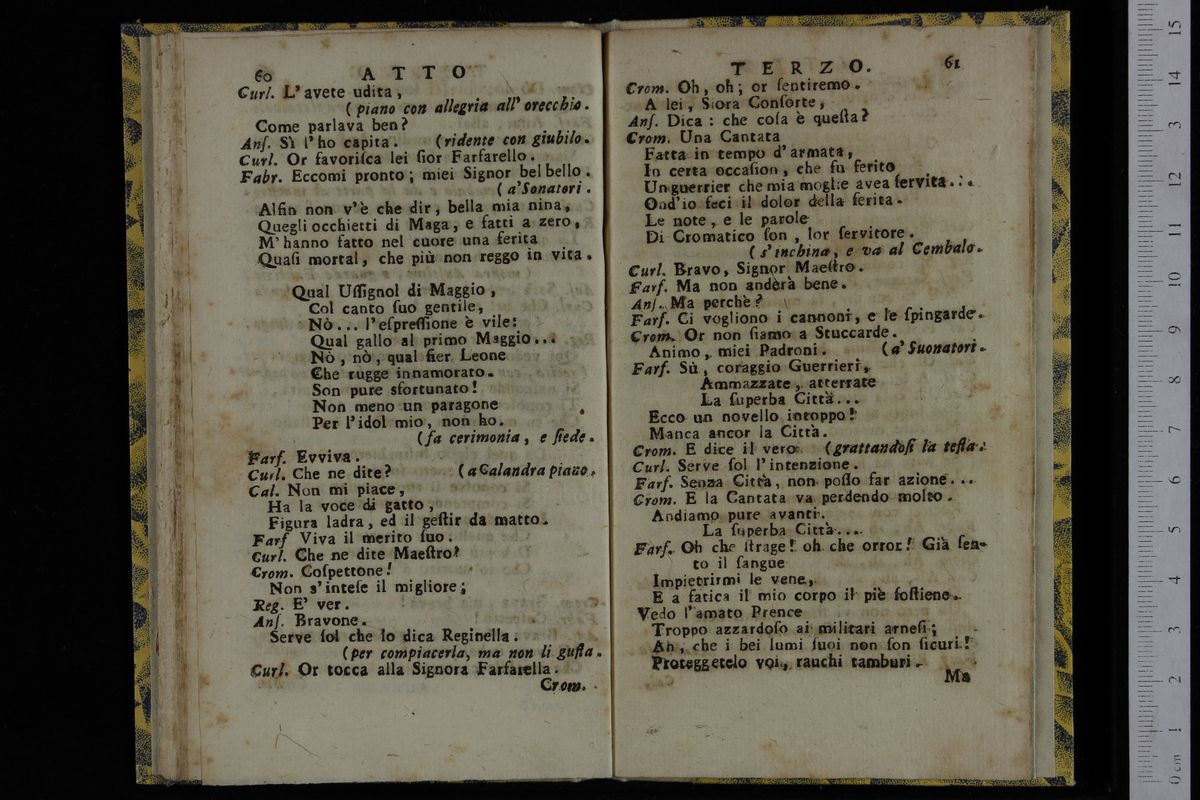 60 ATTO
Curl. L'avete udita,
(piano con allegria all' orecchio.
Come parlava ben?
Anſ. Sì l'ho capita. (ridente con giubilo.
Curl. Or favoriſca lei ſior Farfarello.
Fabr. Eccomi pronto; miei Signor bel bello.
(a' Sonatori.
Alfin non v'è che dir, bella mia nina,
Quegli occhietti di Maga, e fatti a zero,
M'hanno fatto nel cuore una ferita
Quaſi mortal, che più non reggo in vita.
Qual Uſſignol di Maggio,
Col canto ſuo gentile,
Nò... l'eſpreſſione è vile:
Qual gallo al primo Maggio...
Nò, nò, qual fier Leone
Che rugge innamorato.
Son pure sfortunato!
Non meno un paragone
Per l'idol mio, non ho.
(fa cerimonia, e ſiede.
Farf. Evviva.
Curl. Che ne dite? (a Calandra piano.
Cal. Non mi piace,
Ha la voce di gatto,
Figura ladra, ed il geſtir da matto.
Farf Viva il merito ſuo.
Curl. Che ne dite Maeſtro?
Crom. Coſpettone!
Non s'inteſe il migliore;
Reg. E' ver.
Anſ. Bravone.
Serve ſol che lo dica Reginella.
(per compiacerla, ma non li guſta.
Curl. Or tocca alla Signora Farfarella.
Crom.
TERZO. 61
Crom. Oh, oh; or ſentiremo.
A lei, Siora Conſorte,
Anſ. Dica: che coſa è queſta?
Crom. Una Cantata
Fatta in tempo d'armata,
In certa occaſion, che fu ferito
Un guerrier che mia moglie avea ſervita...
Ond'io feci il dolor della ferita.
Le note, e le parole
Di Cromatico ſon, lor ſervitore.
(s'inchina, e va al Cembalo.
Curl. Bravo, Signor Maeſtro.
Farf. Ma non anderà bene.
Anſ. Ma perchè?
Farf. Ci vogliono i cannoni, e le ſpingarde.
Crom. Or non ſiamo a Stuccarde.
Animo, miei Padroni. (a' Suonatori.
Farf. Sù, coraggio Guerrieri,
Ammazzate, atterrate
La ſuperba Città...
Ecco un novello intoppo!
Manca ancor la Città.
Crom. E dice il vero. (grattandoſi la teſta.
Curl. Serve ſol l'intenzione.
Farf. Senza Città, non poſſo far azione...
Crom. E la Cantata va perdendo molto.
Andiamo pure avanti.
La ſuperba Città...
Farf. Oh che ſtrage! oh che orror! Già ſen-
to il ſangue
Impietrirmi le vene,
E a fatica il mio corpo il piè ſoſtiene.
Vedo l'amato Prence
Troppo azzardoſo ai militari arneſi;
Ah, che i bei lumi ſuoi non ſon ſicuri!
Proteggetelo voi, rauchi tamburi.
Ma
0 cm 1 2 3 4 5 6 7 8 9 10 11 12 13 14 15